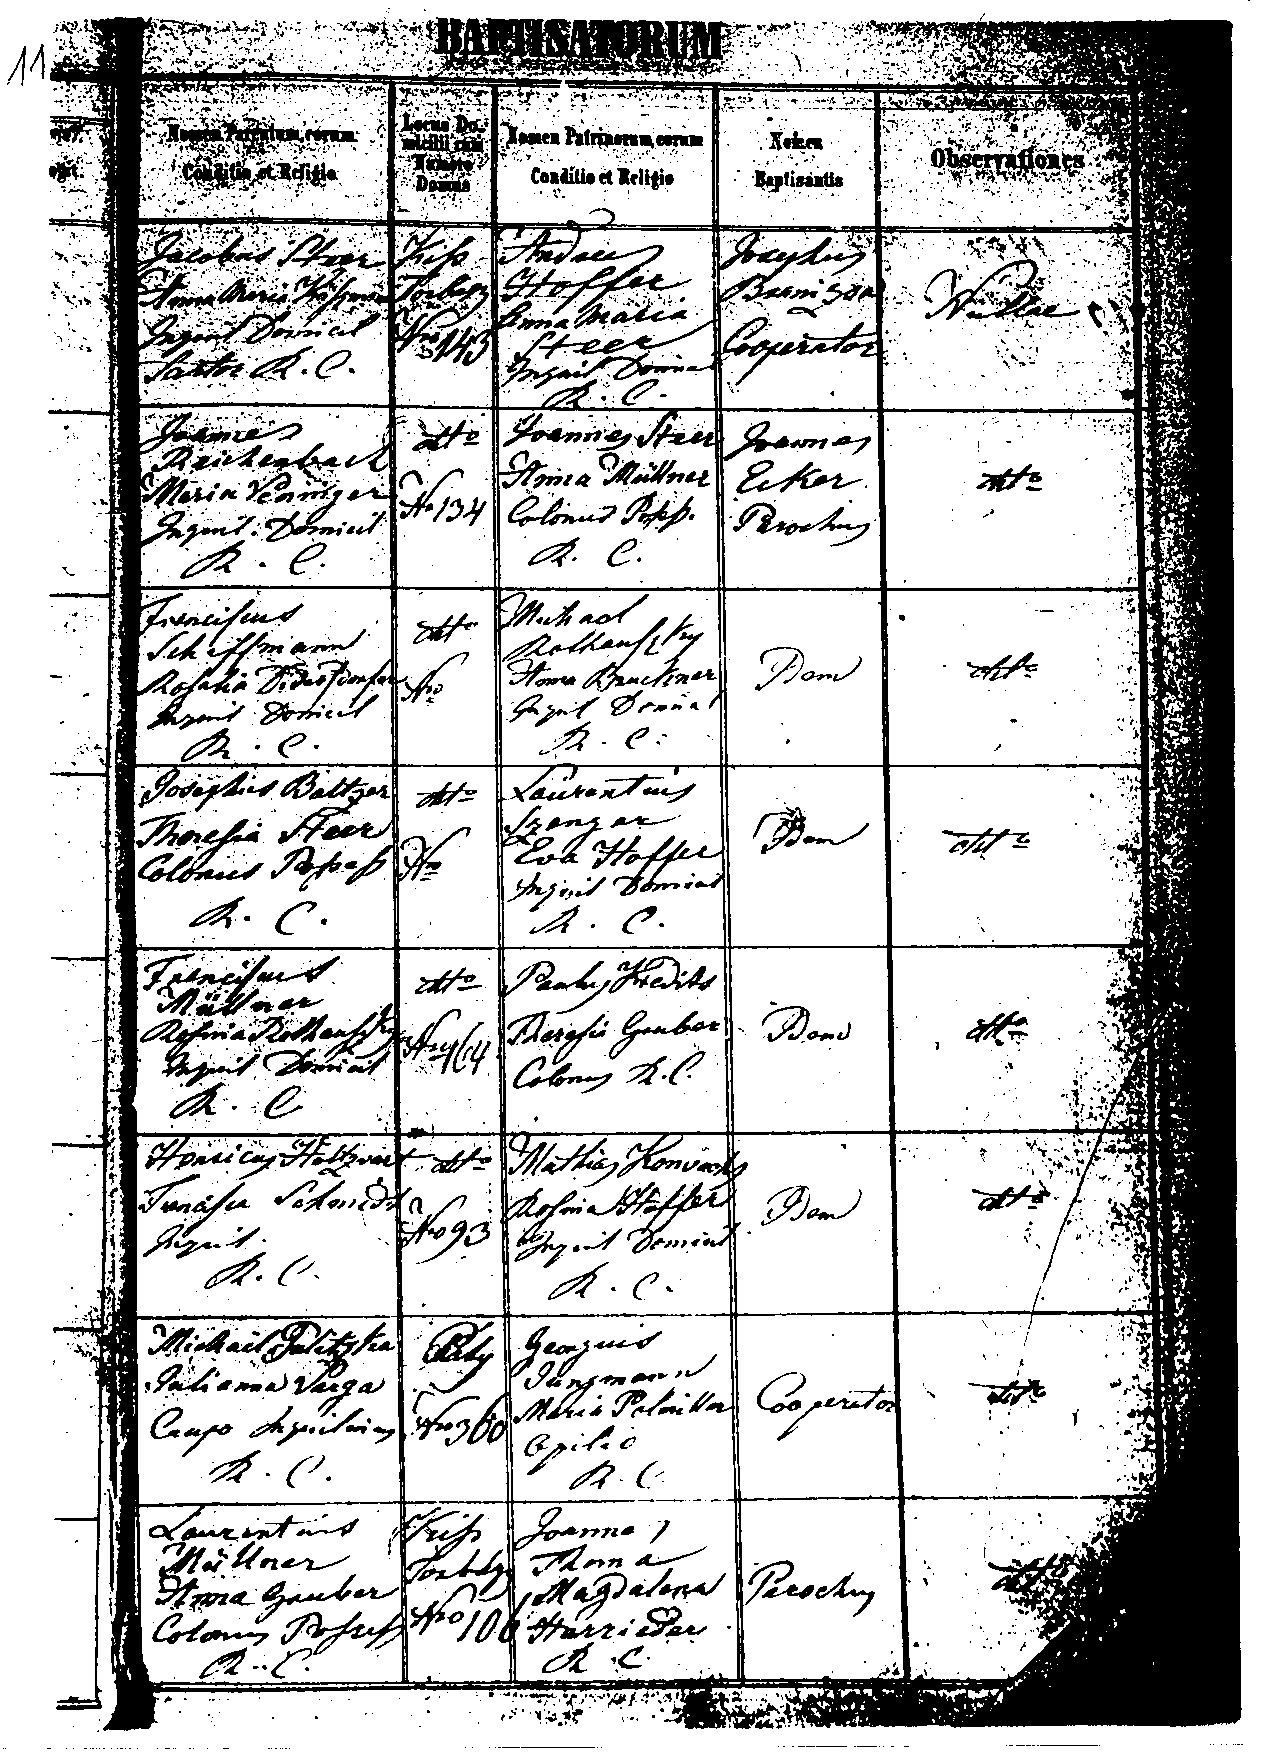 BAPTISATORUM
11
Nomen Parentum eorum
Conditio et Religio
Locus Do-
micilii cum
Numero
Domus
Nomen Patrinorum eorum
Conditio et Religio
Nomen
Baptisantis
Observationes
Jacobus Steer
Anna Maria
Inquil Domicil
Sartor R. C.
Kiss
Torbagy
Nro 145
Andreas
Hoffer
Anna Maria
Steer
Inquil Domicil
R. C.
Josephus
Cooperator
Nullae
Joannes
Reichenbach
Maria Venniger
Inquil. Domicil
R. C.
dtto
No 134
Joannes Steer
Anna Müllner
Colonus Poss.
R. C.
Joannes
Ecker
Parochus
dtto
Franciscus
Schiffmann
Rosalia
Inquil Domicil
R. C.
dtto
Nro
Michael
Rothaufszky
Anna Bruckner
Inquil Domicil
R. C.
Dem
dtto
Josephus Baltzer
Theresia Steer
Colonus Possess
R. C.
dtto
Nro
Laurentius
Szenger
Eva Hoffer
Inquil Domicil
R. C.
Dem
dtto
Franciscus
Müllner
Rosina Rothaufszky
Inquil Domicil
R. C
dtto
Nro 164
Paulus Kredits
Theresia Gauber
Colonus R. C.
Dem
dtto
Henricus Holtzwart
Francisca Schmidt
Inquil.
R. C.
dtto
Nro 93
Mathias
Rosina Hoffer
Inquil Domicil
R. C.
Dem
dtto
Michael Palitzka
Julianna Varga
Caupo Inquilinus
R. C.
Páty
Nro 360
Georgius
Jungmann
Maria
Opilio
R. C
Cooperator
dtto
Laurentius
Müllner
Anna Gauber
Colonus Possess
R. C.
Kiss
Torbágy
Nro 106
Joannes
Thoma
Magdalena
Harrieder
R. C.
Parochus
dtto